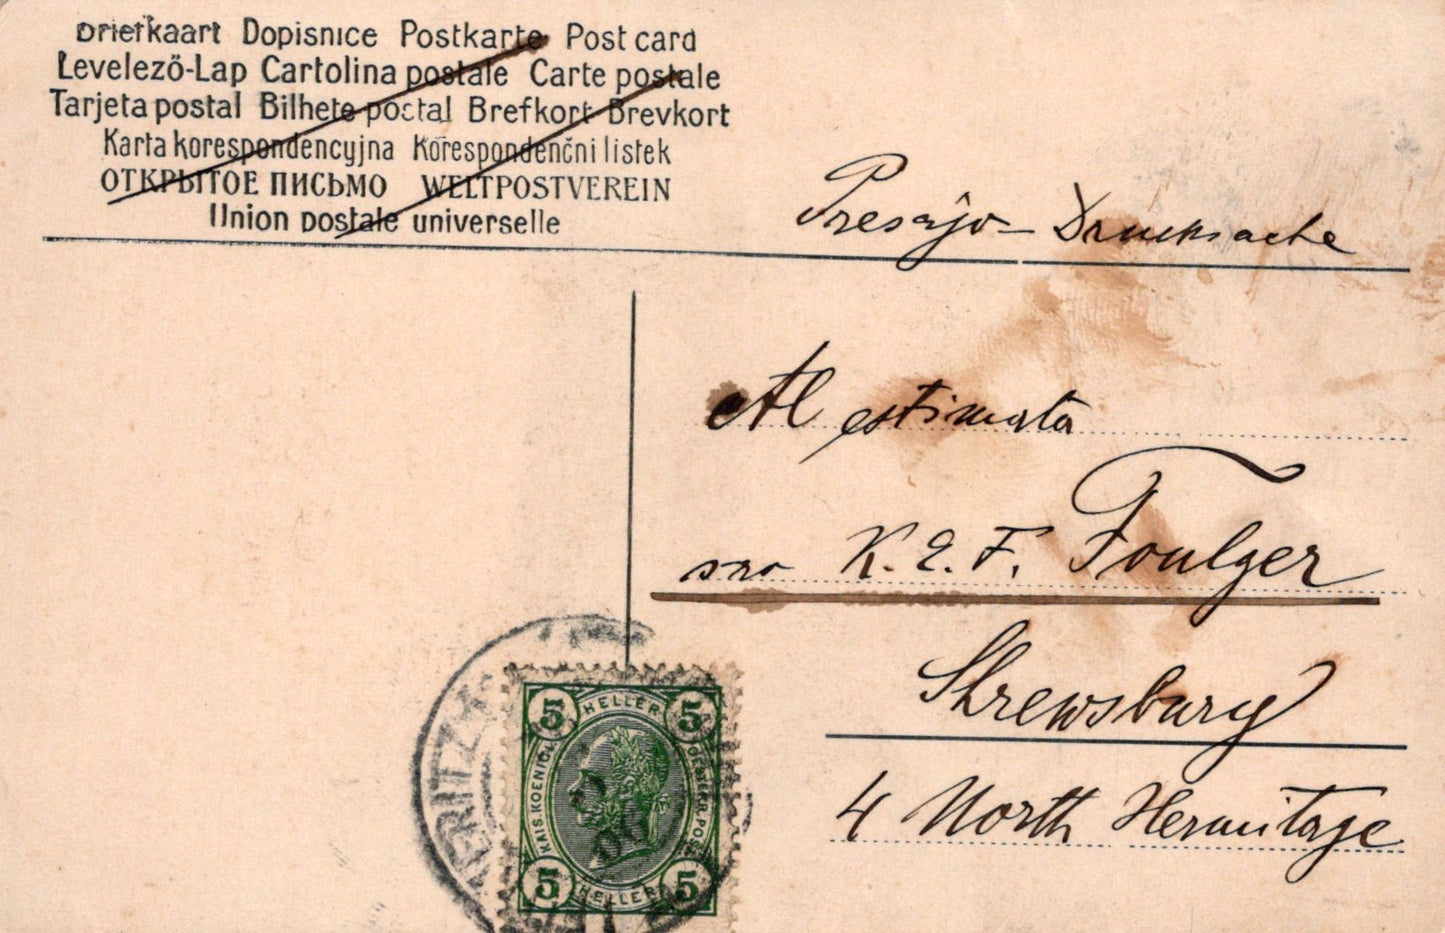 Briefkaart Dopisnice Postkarte Post card
Levelező-Lap Cartolina postale Carte postale
Tarjeta postal Bilhete postal Brefkort Brevkort
Karta korespondencyjna Korespondenčni listek
ОТКРЫТОЕ ПИСЬМО WELTPOSTVEREIN
Union postale universelle
Presajo - Drucksache
Al estimata
sro K. E. F. Foulger
Shrewsbury
4 North Hermitage
5 HELLER 5
KAIS. KOENIGL.
5 HELLER 5